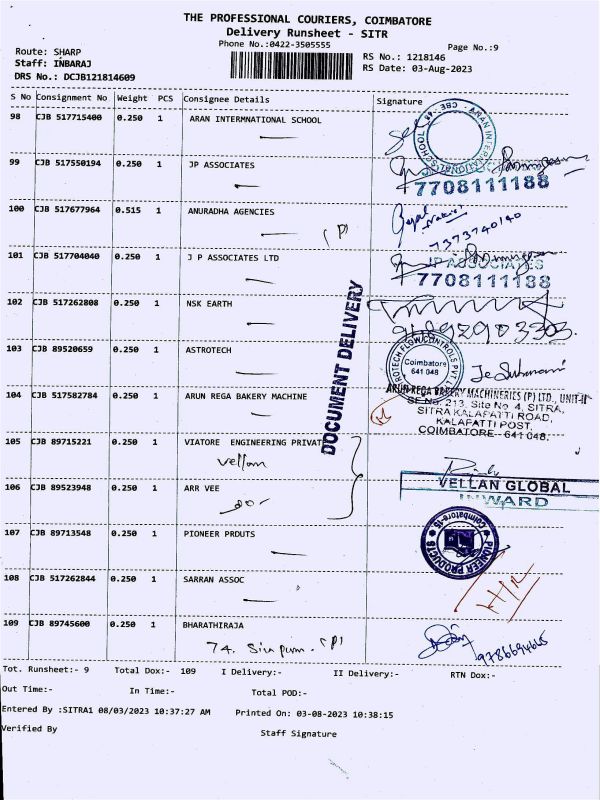 THE PROFESSIONAL COURIERS, COIMBATORE
Delivery Runsheet - SITR
Phone No.:0422-3505555
Page No.:9
Route: SHARP
Staff: INBARAJ
DRS No.: DCJB121814609
RS No.: 1218146
RS Date: 03-Aug-2023
S No Consignment No Weight PCS Consignee Details Signature
98 CJB 517715400 0.250 1 ARAN INTERMNATIONAL SCHOOL
99 CJB 517550194 0.250 1 JP ASSOCIATES
7708111188
100 CJB 517677964 0.515 1 ANURADHA AGENCIES
(P)
7373740140
101 CJB 517704040 0.250 1 J P ASSOCIATES LTD
JP ASSOCIATES
7708111188
102 CJB 517262808 0.250 1 NSK EARTH
DOCUMENT DELIVERY
103 CJB 89520659 0.250 1 ASTROTECH
Coimbatore
641 048
104 CJB 517582784 0.250 1 ARUN REGA BAKERY MACHINE
ARUN REGA BAKERY MACHINERIES (P) LTD., UNIT-II
SF No. 213, Site No 4, SITRA,
SITRA KALAPATTI ROAD,
KALAPATTI POST,
COIMBATORE - 641 048.
105 CJB 89715221 0.250 1 VIATORE ENGINEERING PRIVAT
Vellan
VELLAN GLOBAL
INWARD
106 CJB 89523948 0.250 1 ARR VEE
-do-
107 CJB 89713548 0.250 1 PIONEER PRODUTS
PIONEER PRODUCTS
Coimbatore-15.
108 CJB 517262844 0.250 1 SARRAN ASSOC
109 CJB 89745600 0.250 1 BHARATHIRAJA
74. (P)
9786694665
Tot. Runsheet:- 9 Total Dox:- 109 I Delivery:- II Delivery:- RTN Dox:-
Out Time:- In Time:- Total POD:-
Entered By :SITRA1 08/03/2023 10:37:27 AM Printed On: 03-08-2023 10:38:15
Verified By Staff Signature